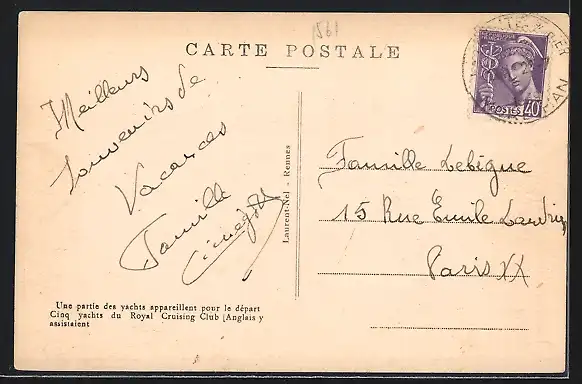 1561
CARTE POSTALE
Meilleurs
Souvenirs de
Vacances
Famille
Laurent-Nel - Rennes
POSTES 40
Famille Lebègue
15 Rue Emile Landrin
Paris XX
Une partie des yachts appareillent pour le départ
Cinq yachts du Royal Cruising Club (Anglais y
assistaient